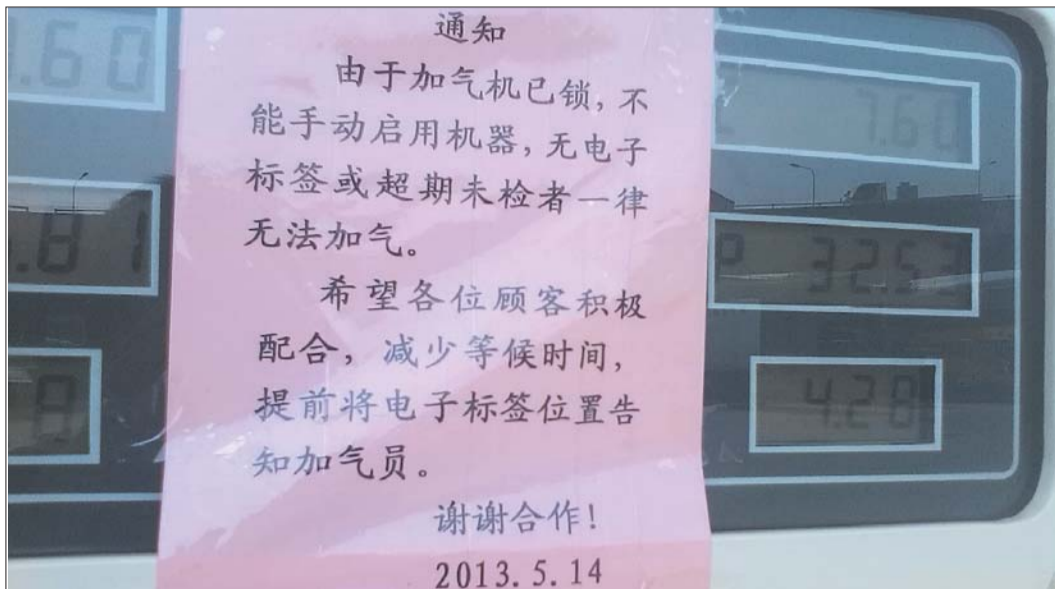 通知
由于加气机已锁，不
能手动启用机器，无电子
标签或超期未检者一律
无法加气。
希望各位顾客积极
配合，减少等候时间，
提前将电子标签位置告
知加气员。
谢谢合作！
2013.5.14
.60
7.60
.81
32.53
8
4.28